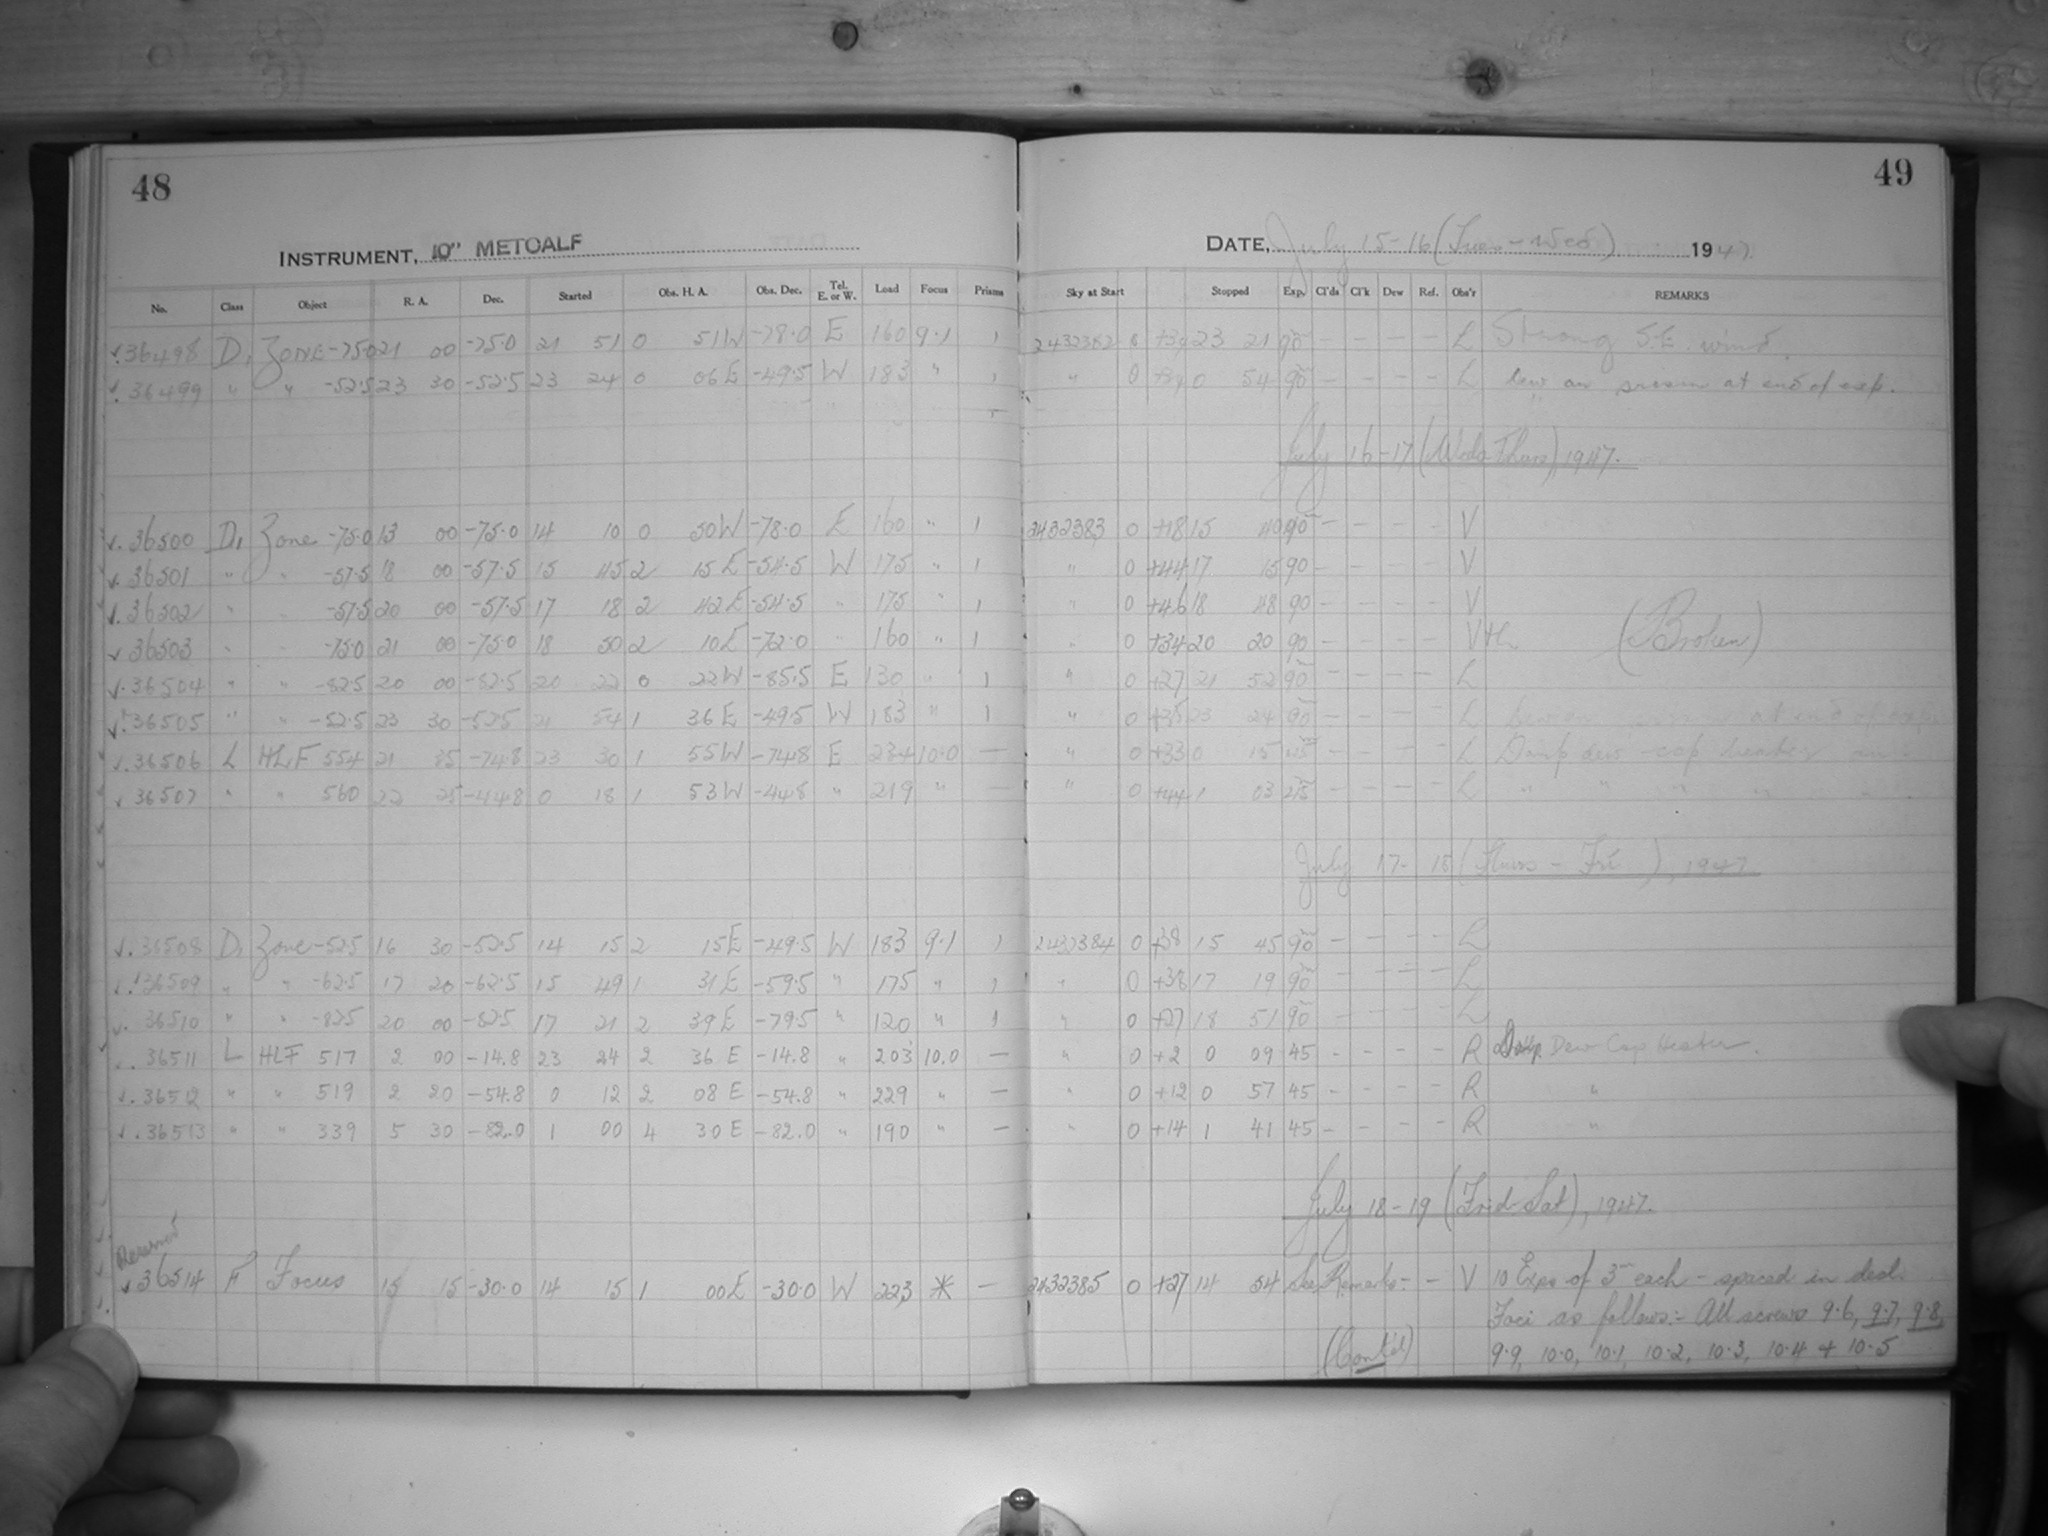 48
49
INSTRUMENT, 10" METCALF
DATE, July 15-16 (Tues - Wed) 1947.
No. Class Object R. A. Dec. Started Obs. H. A. Obs. Dec. Tel. E. or W. Load Focus Prisms Sky at Start Stopped Exp. Cl'ds Cl'k Dew Ref. Obs'r REMARKS
√. 36498 D, ZONE -75.0 21 00 -75.0 21 51 0 51 W -78.0 E 160 9.1 1 2432382 0 23 21 90 - - - - L Strong S.E. wind.
√. 36499 " " -52.5 23 30 -52.5 23 24 0 06 E -49.5 W 183 " 1 " 0 0 54 90 - - - - L Dew on prism at end of exp.
July 16-17 (Wed-Thurs), 1947.
√. 36500 D, Zone -75.0 13 00 -75.0 14 10 0 50 W -78.0 E 160 " 1 2432383 0 +18 15 40 90 - - - - V
√. 36501 " " -57.5 18 00 -57.5 15 45 2 15 E -54.5 W 175 " 1 " 0 +44 17 15 90 - - - - V
√. 36502 " " -57.5 20 00 -57.5 17 18 2 42 E -54.5 " 175 " 1 " 0 +46 18 48 90 - - - - V
√ 36503 " " -75.0 21 00 -75.0 18 50 2 10 E -72.0 " 160 " 1 " 0 +34 20 20 90 - - - - V+L (Broken)
√. 36504 " " -82.5 20 00 -82.5 20 22 0 22 W -85.5 E 130 " 1 " 0 +27 21 52 90 - - - - L
√. 36505 " " -52.5 23 30 -52.5 21 54 1 36 E -49.5 W 183 " 1 " 0 +35 23 24 90 - - - - L at end of exp.
√. 36506 L HLF 554 21 35 -74.8 23 30 1 55 W -74.8 E 234 10.0 — " 0 +33 0 15 45 - - - - L Damp dew-cap heater
√ 36507 " " 560 22 25 -44.8 0 18 1 53 W -44.8 " 219 " — " 0 +44 1 03 45 - - - - L " " " "
July 17-18 (Thurs - Fri), 1947
√. 36508 D, Zone -52.5 16 30 -52.5 14 15 2 15 E -49.5 W 183 9.1 1 2432384 0 +38 15 45 90 - - - - L
√. 36509 " " -62.5 17 20 -62.5 15 49 1 31 E -59.5 " 175 " 1 " 0 +38 17 19 90 - - - - L
√. 36510 " " -82.5 20 00 -82.5 17 21 2 39 E -79.5 " 120 " 1 " 0 +27 18 51 90 - - - - L
. 36511 L HLF 517 2 00 -14.8 23 24 2 36 E -14.8 " 203 10.0 — " 0 +2 0 09 45 - - - - R Dew Cap Heater.
√. 36512 " " 519 2 20 -54.8 0 12 2 08 E -54.8 " 229 " — " 0 +12 0 57 45 - - - - R "
√. 36513 " " 339 5 30 -82.0 1 00 4 30 E -82.0 " 190 " — " 0 +14 1 41 45 - - - - R "
July 18-19 (Frid-Sat), 1947.
√ 36514 F Focus 15 15 -30.0 14 15 1 00 E -30.0 W 223 * — 2432385 0 +27 14 54 See Remarks - - V 10 Exps of 3m each - spaced in decl.
Foci as follows:- All screws 9.6, 9.7, 9.8,
(Cont'd) 9.9, 10.0, 10.1, 10.2, 10.3, 10.4 + 10.5